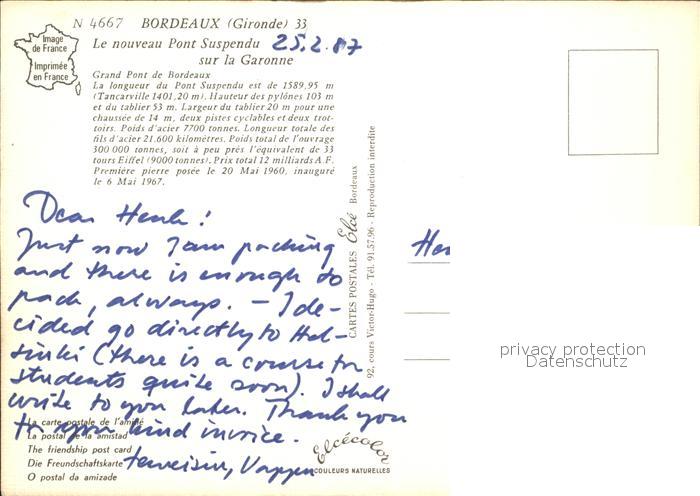 N 4667 BORDEAUX (Gironde) 33
Image
de France
Imprimée
en France
Le nouveau Pont Suspendu 25.2.87
sur la Garonne
Grand Pont de Bordeaux
La longueur du Pont Suspendu est de 1589,95 m
(Tancarville 1401,20 m). Hauteur des pylônes 103 m
et du tablier 53 m. Largeur du tablier 20 m pour une
chaussée de 14 m, deux pistes cyclables et deux trot-
toirs. Poids d'acier 7700 tonnes. Longueur totale des
fils d'acier 21.600 kilomètres. Poids total de l'ouvrage
300 000 tonnes, soit à peu près l'équivalent de 33
tours Eiffel (9000 tonnes). Prix total 12 milliards A.F.
Première pierre posée le 20 Mai 1960, inauguré
le 6 Mai 1967.
Dear Henk!
Just now I am packing
and there is enough to
pack, always. – I de-
cided go directly to Hel-
sinki (there is a course for
students quite soon). I shall
write to you later. Thank you
for your kind invoice.
Terveisin,
La carte postale de l'amitié
La postal de la amistad
The friendship post card
Die Freundschaftskarte
O postal da amizade
CARTES POSTALES Elcé Bordeaux
92, cours Victor-Hugo - Tél. 91.57.96 - Reproduction interdite
Elcécolor
COULEURS NATURELLES
Hen
privacy protection
Datenschutz